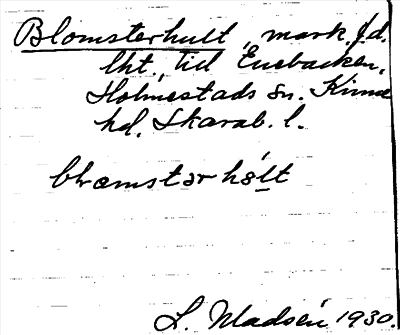 Blomsterhult, mark, f.d.
lht, till Enebacken,
Holmestads sn. Kinne
hd. Skarab. l.
blɷmstərhəlt
L. Madsén 1930.